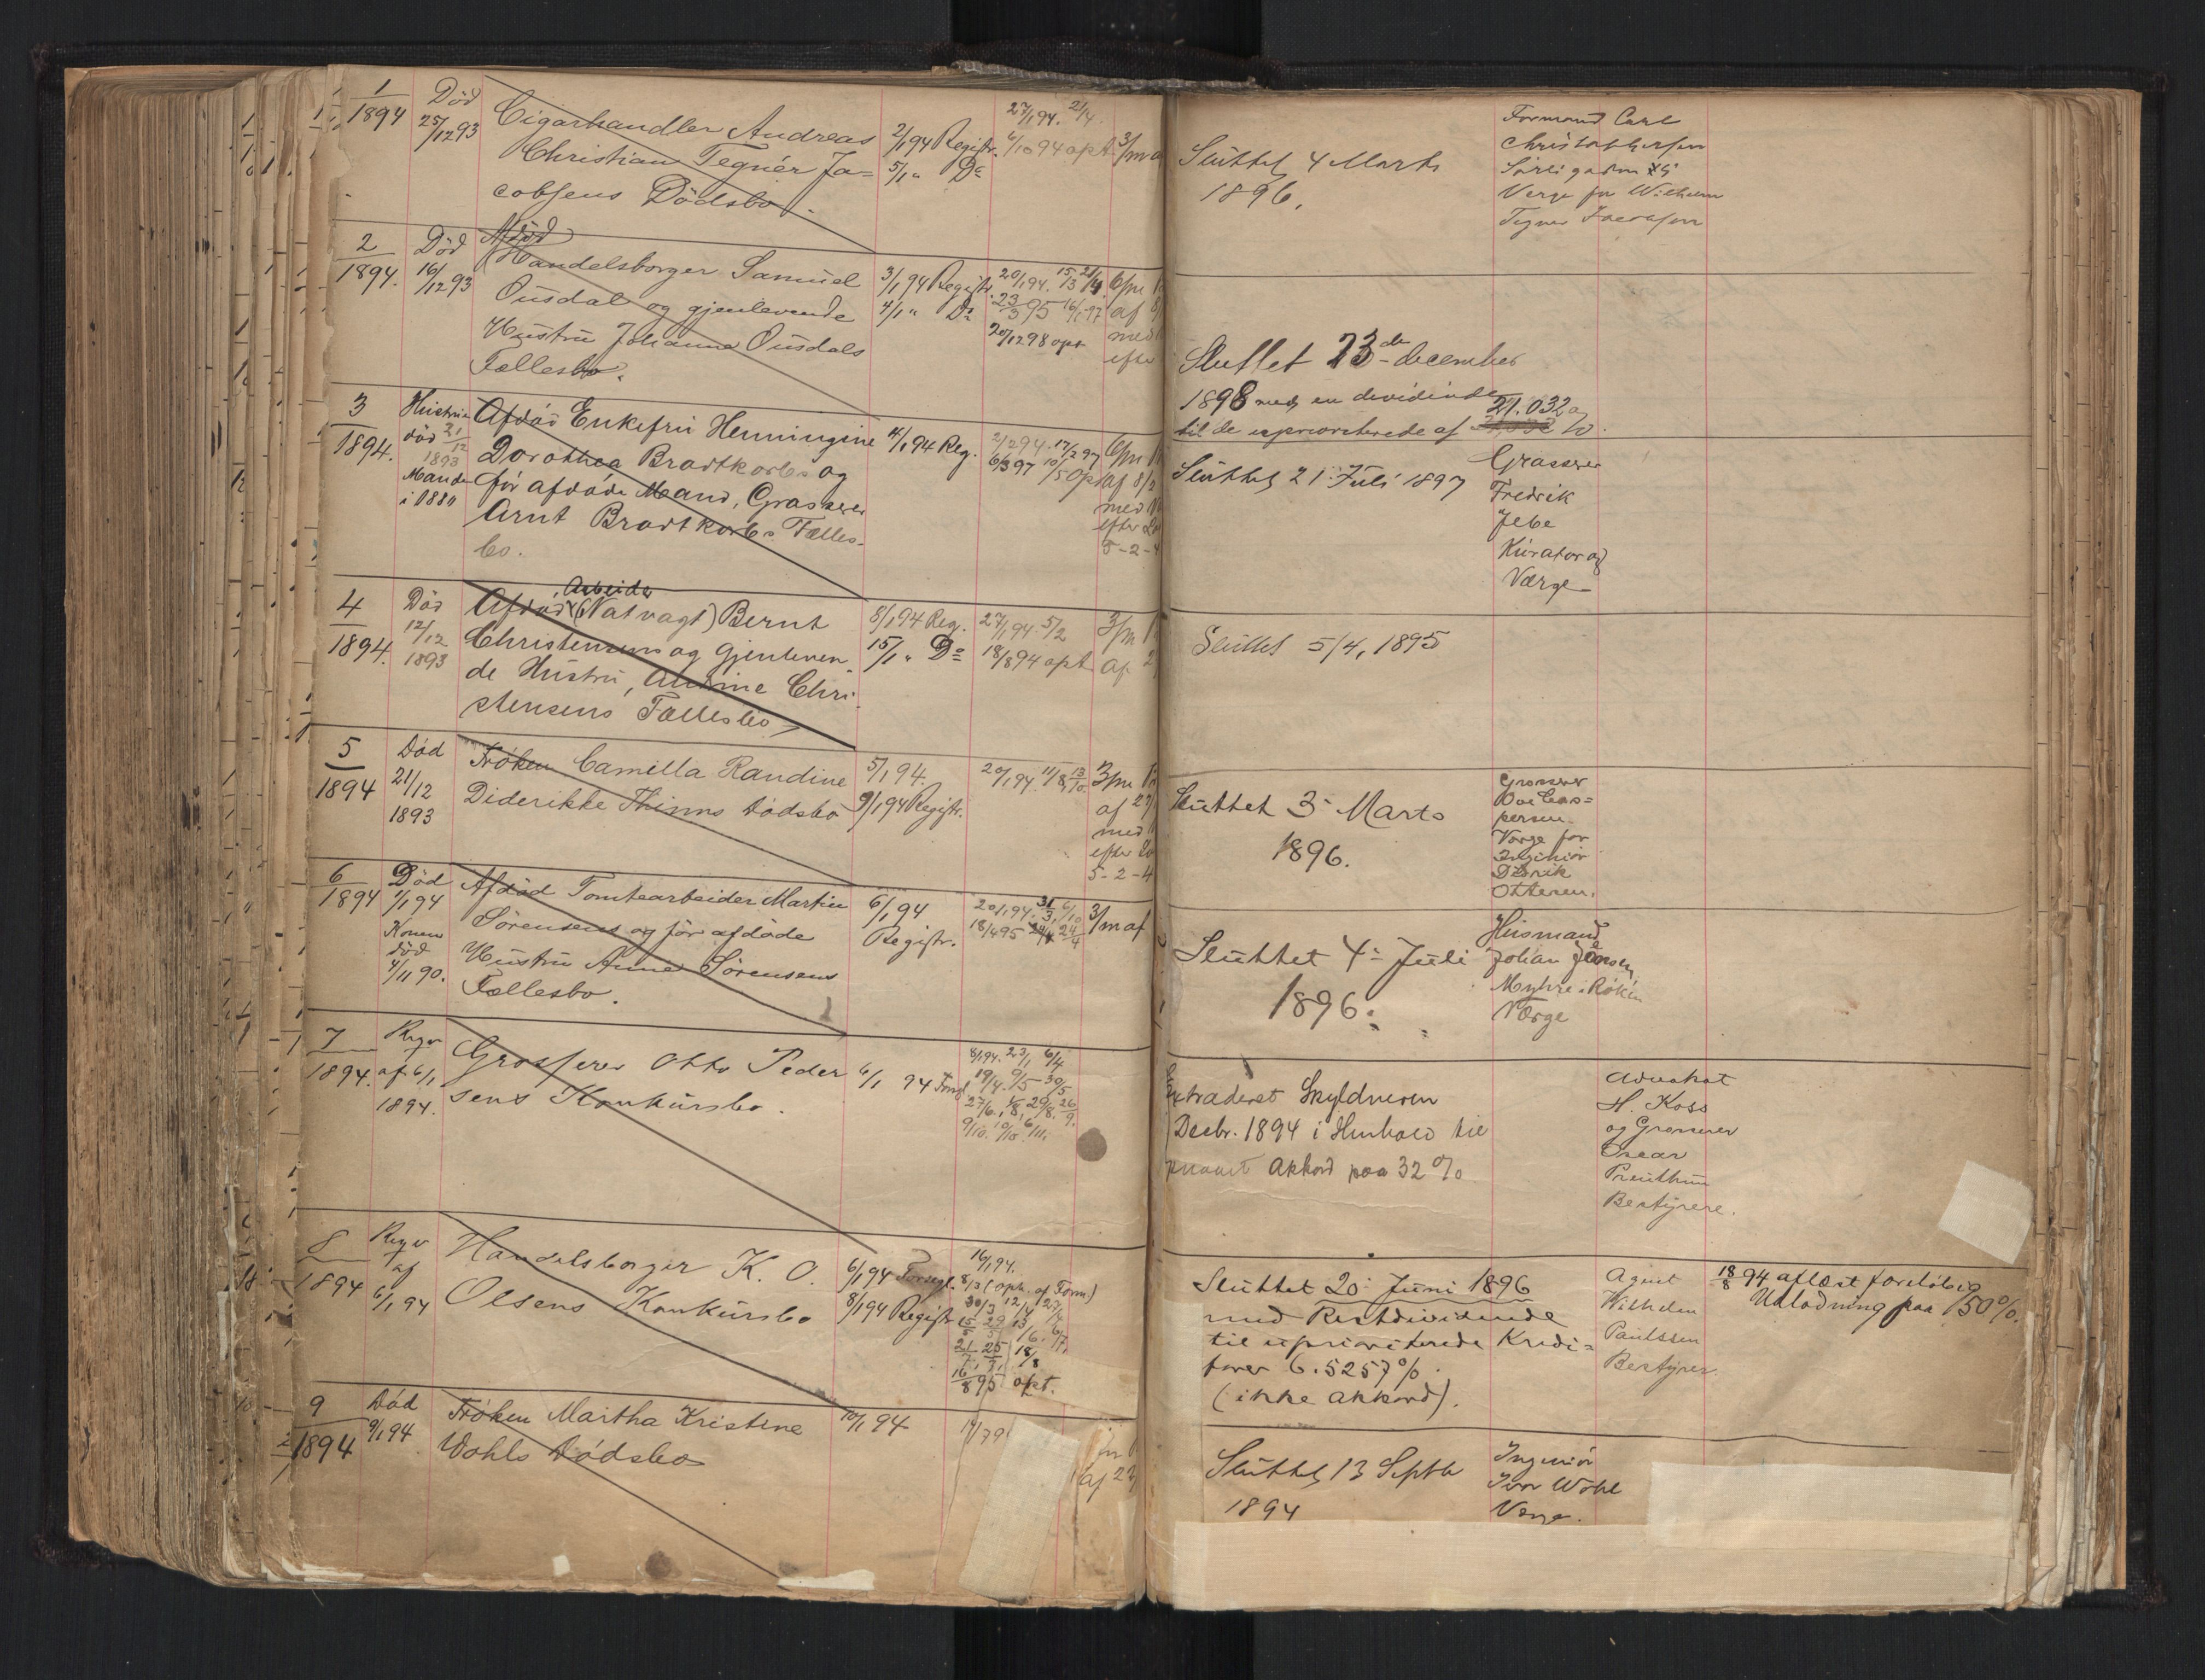 1
1894
Död
25/12 93
Cigarhandler Andreas
Christian Tegnér Ja=
cobsens Dödsbo.
2/1 94 Registr.
5/1 " Do
27/1 94. 21/4.
6/10 94 opt.
3/m a
Sluttet 4 Marts
1896.
Formand Carl
Christophersen
Verge for Wilhelm
Tegner Jacobsen
2
1894.
Död
16/12 93
Afdöd
Handelsborger Samuel
Ousdal og gjenlevende
Hustru Johanna Ousdals
Fællesbo.
3/1 94 Registr.
4/1 " Do
20/1 94. 15/3 21/4.
23/3 95 16/1 97
20/12 98 opt
6/m
af
med
efter
Sluttet 23de december
1898 med en devidende
til de upriorterede af 21.032 o/o.
3
1894.
Hustru
död 31/12
1893
Manden
i 1880
Afdöd Enkefru Henningine
Dorothea Bradtkorbs og
för afdöde Mand, Grosserer
Arnt Bradtkorbs Fælles-
bo.
4/1 94 Reg.
2/2 94. 17/2 97
6/3 97 10/5 Opt
6/m
af 8/2
med
efter
5-2-4
Sluttet 21 Juli 1897
Grosserer
Fredrik
Jebe
Kurator og
Værge
4
1894.
Död
12/12
1893
Arbeider
Afdöd (Natvagt) Bernt
Christensens og gjenleven
de Hustru, Andrine Chri
stensens Fællesbo
8/1 94 Reg.
15/1 " Do
27/1 94 5/2
18/8 94 opt
3/m
af 2
Sluttet 5/4, 1895
5
1894
Död
21/12
1893
Fröken Camilla Randine
Diderikke Thinns Dödsbo
5/1 94.
9/1 94 Registr.
20/1 94 11/8 13/10.
3/m
af 27
med
efter
5-2-4
Sluttet 3 Marts
1896.
Grosserer
Ove Cas=
persen
Værge for
Ingeniör
Didrik
Ottesen.
6
1894
Död
1/1 94
Konen
död
4/11 90.
Afdöd Tomtearbeider Martin
Sörensens og för afdöde
Hustru Anne Sörensens
Fællesbo.
6/1 94
Registr.
20/1 94. 31/3, 6/10
18/4 95 24/4
3/m af
Sluttet 4 Juli
1896.
Husmand
Johan Jensen
Myhre i Röken
Værge
7
1894.
Reqv
af 6/1
1894.
Grosserer Otto Peder
sens Konkursbo.
6/1 94 Forsgl.
8/1 94. 23/1 6/4
19/4. 9/5 30/5
27/6. 1/8, 29/8. 26/9.
9/10. 10/10. 6/11.
Extraderet Skyldneren
Decbr. 1894 i Henhold til
Akkord paa 32 %
Advokat
H. Koss
og Grosserer
Oscar
Preuthun
Bestyrere.
8
1894
Reqv
af
6/1 94
Handelsborger K. O.
Olsens Konkursbo
6/1 94 Forsegl.
8/1 94 Registr.
16/1 94.
8/3 (oph. af Form)
30/3 12/4 27/4
16/8 95 opt.
Sluttet 20 Juni 1896
med Restdividende
til upriiorterede Kredi=
torer 6.5257 %.
(ikke akkord).
Agent
Wilhelm
Paulssen
Bestyrer.
18/8 94 aflæst foreløbig
Udlodning paa 50 %.
9
1894
Död
9/1 94
Fröken Martha Kristine
Wohls Dödsbo
10/1 94
af 2
Sluttet 13 Septbr
1894
Ingeniör
Iver Wohl
Værge.